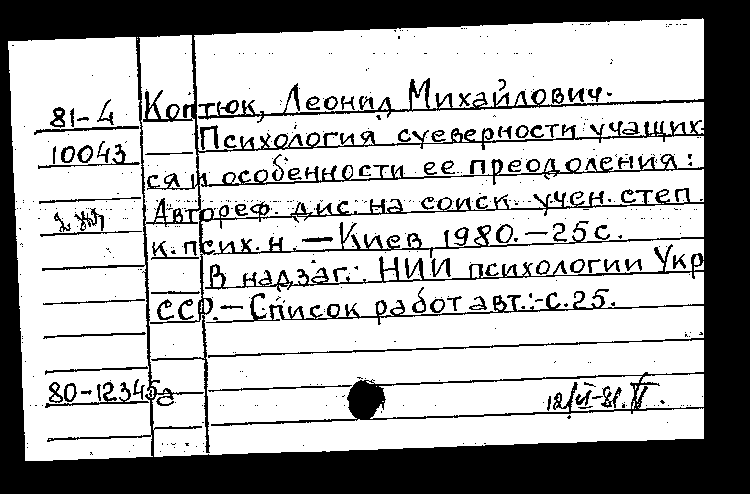 81-4 Коптюк, Леонид Михайлович.
Психология суеверности учащих-
10043
ся и особенности ее преодоления:
Автореф. дис. на соиск. учен. степ.
к. псих. н. — Киев, 1980. — 25 с.
В надзаг.: НИИ психологии Укр
ССР. — Список работ авт.: с. 25.
80-12345а
12/VI-81.